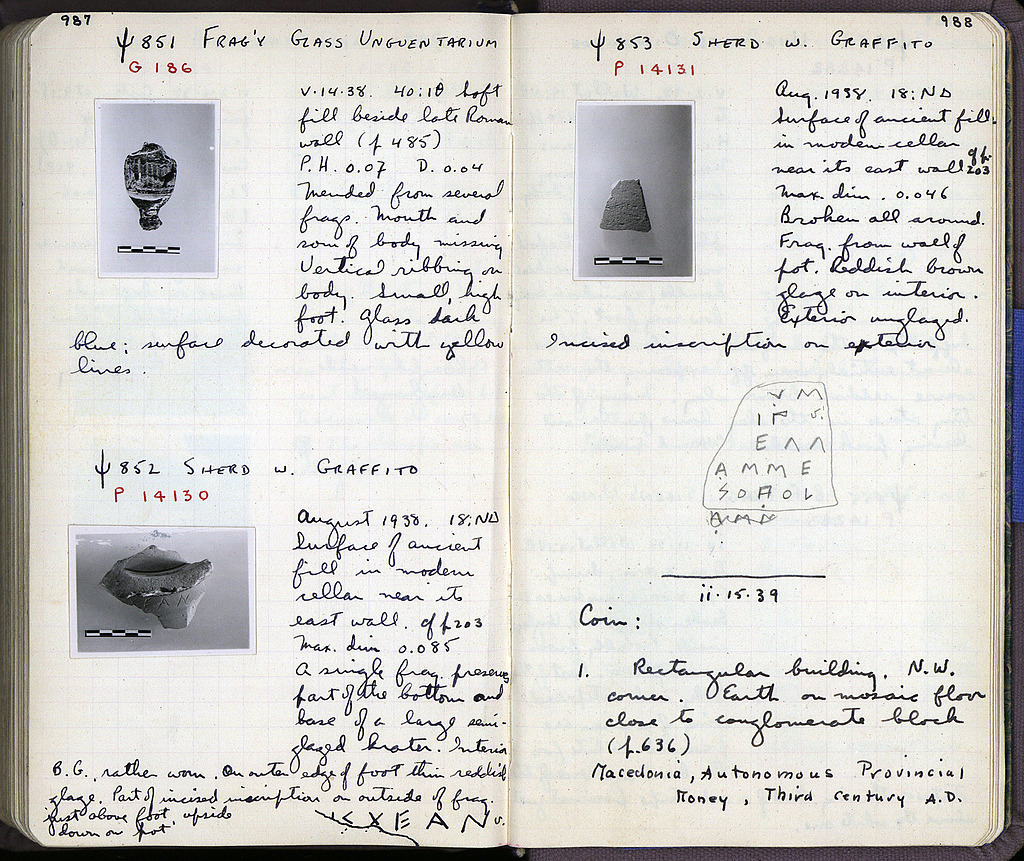 987
ψ 851 FRAG'Y GLASS UNGUENTARIUM
G 186
V.14.38. 40:1θ Soft
fill beside late Roman
wall (p 485)
P.H. 0.07 D. 0.04
Mended from several
frags. Mouth and
som of body missing
Vertical ribbing on
body. Small, high
foot. Glass dark
blue; surface decorated with yellow
lines.
ψ 852 SHERD W. GRAFFITO
P 14130
August 1938. 18:ND
Surface of ancient
fill in modern
cellar near its
east wall. cf p 203
Max. dim 0.085
A single frag. preserves
part of the bottom and
base of a large semi-
glazed krater. Interior
B.G., rather worn. On outer edge of foot thin reddish
glaze. Part of incised inscription on outside of frag.
just above foot, upside
down on pot
ΕΑΝ v.
988
ψ 853 SHERD W. GRAFFITO
P 14131
Aug. 1938. 18:ND
Surface of ancient fill
in modern cellar
near its east wall cf p. 203
Max. dim. 0.046
Broken all around.
Frag. from wall of
pot. Reddish brown
glaze on interior.
Exterior unglazed.
Incised inscription on exterior
ΕΛΛ
ΑΜΜΕ
ii.15.39
Coin:
1. Rectangular building. N.W.
corner. Earth on mosaic floor
close to conglomerate block
(p.636)
Macedonia, Autonomous Provincial
Money, Third century A.D.